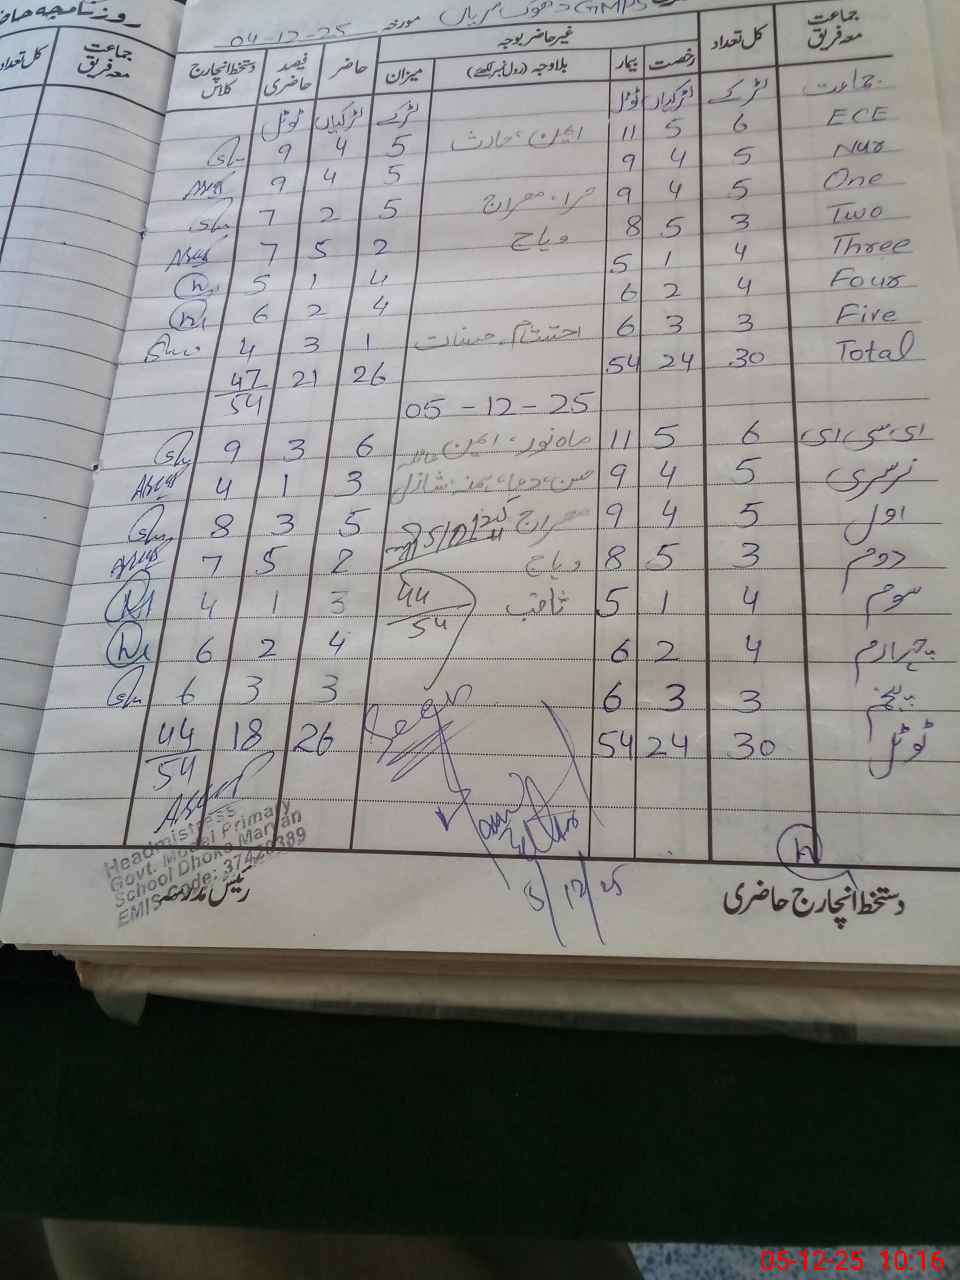 روزنامچہ حاضری
GMPS ڈھوک مریاں مورخہ 04-12-25
جماعت معہ فریق کل تعداد غیر حاضر بوجہ حاضر فیصد حاضری دستخط انچارج کلاس جماعت معہ فریق کل تعداد
رخصت بیمار بلاوجہ (رول نمبر لکھیے) میزان
جماعت لڑکے لڑکیاں ٹوٹل لڑکے لڑکیاں ٹوٹل
ECE 6 5 11 ایمن، حارث 5 4 9
Nur 5 4 9 5 4 9
One 5 4 9 حرا، معراج 5 2 7
Two 3 5 8 وہاج 2 5 7
Three 4 1 5 4 1 5
Four 4 2 6 4 2 6
Five 3 3 6 احتشام، حسنات 1 3 4
Total 30 24 54 26 21 47/54
05-12-25
ای سی ای 6 5 11 ماہ نور، ایمن 6 3 9
نرسری 5 4 9 3 1 4
اول 5 4 9 معراج 5 3 8
دوم 3 5 8 وہاج 2 5 7
سوم 4 1 5 ثاقب 44/54 3 1 4
چہارم 4 2 6 4 2 6
پنجم 3 3 6 3 3 6
ٹوٹل 30 24 54 26 18 44/54
Headmistress
Govt. Model Primary
School Dhoke Maryan
EMIS Code: 37420389
5/12/25
دستخط انچارج حاضری رئیس مدرسہ
05-12-25 10:16